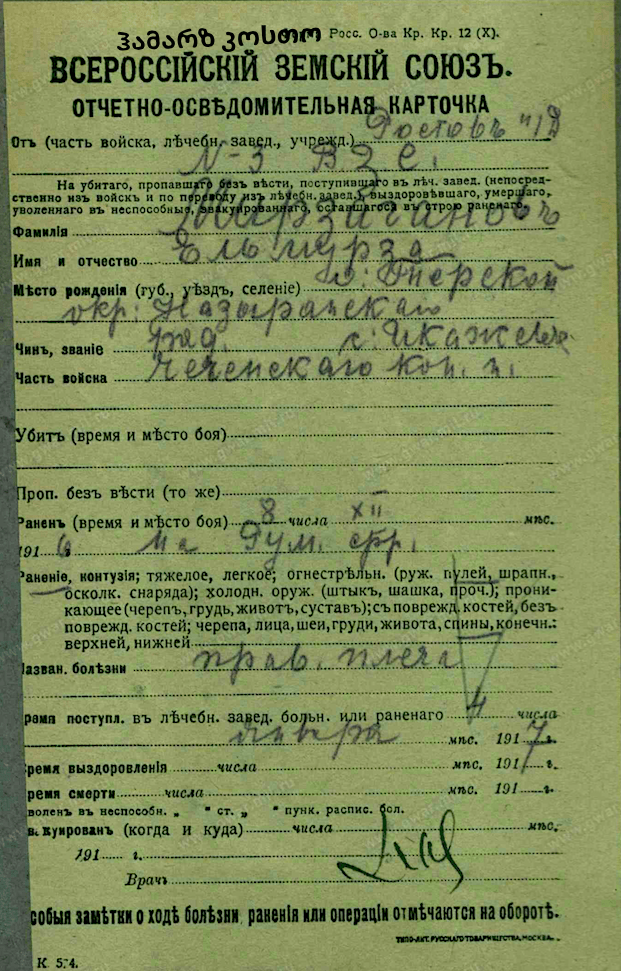 ჰამარზ კოსთო Росс. О-ва Кр. Кр. 12 (X).
ВСЕРОССІЙСКІЙ ЗЕМСКІЙ СОЮЗЪ.
ОТЧЕТНО-ОСВѢДОМИТЕЛЬНАЯ КАРТОЧКА
Отъ (часть войска, лѣчебн. завед., учрежд.) Ростовъ н/Д
N-3 В З С.
На убитаго, пропавшаго безъ вѣсти, поступившаго въ лѣч. завед. (непосред-
ственно изъ войскъ и по переводу изъ лѣчебн. завед.), выздоровѣвшаго, умершаго,
уволеннаго въ неспособные, эвакуированнаго, оставшагося въ строю раненаго.
Фамилія
Имя и отчество Ельмурза
Мѣсто рожденія (губ., уѣздъ, селеніе) о: Терской
окр: Назырапскаго
Чинъ, званіе ряд. с:
Часть войска Чеченскаго кон. п.
Убитъ (время и мѣсто боя)
Проп. безъ вѣсти (то же)
Раненъ (время и мѣсто боя) 8 числа XII мѣс.
1916 На Рум. фр.
Раненіе, контузія; тяжелое, легкое; огнестрѣльн. (руж. пулей, шрапн.,
осколк. снаряда); холодн. оруж. (штыкъ, шашка, проч.); прони-
кающее (черепъ, грудь, животъ, суставъ); съ поврежд. костей, безъ
поврежд. костей; черепа, лица, шеи, груди, живота, спины, конечн.:
верхней, нижней
Назван. болѣзни прав. плеча
Время поступл. въ лѣчебн. завед. больн. или раненаго 4 числа
января мѣс. 1917 г.
Время выздоровленія числа мѣс. 191 г.
Время смерти числа мѣс. 191 г.
воленъ въ неспособн. „ " ст. „ " пунк. распис. бол.
вакуированъ (когда и куда) числа мѣс.
191 г.
Врачъ
собыя замѣтки о ходѣ болѣзни, раненія или операціи отмѣчаются на оборотѣ.
ТИПО-ЛИТ. РУССКАГО ТОВАРИЩЕСТВА, МОСКВА.
К 574.